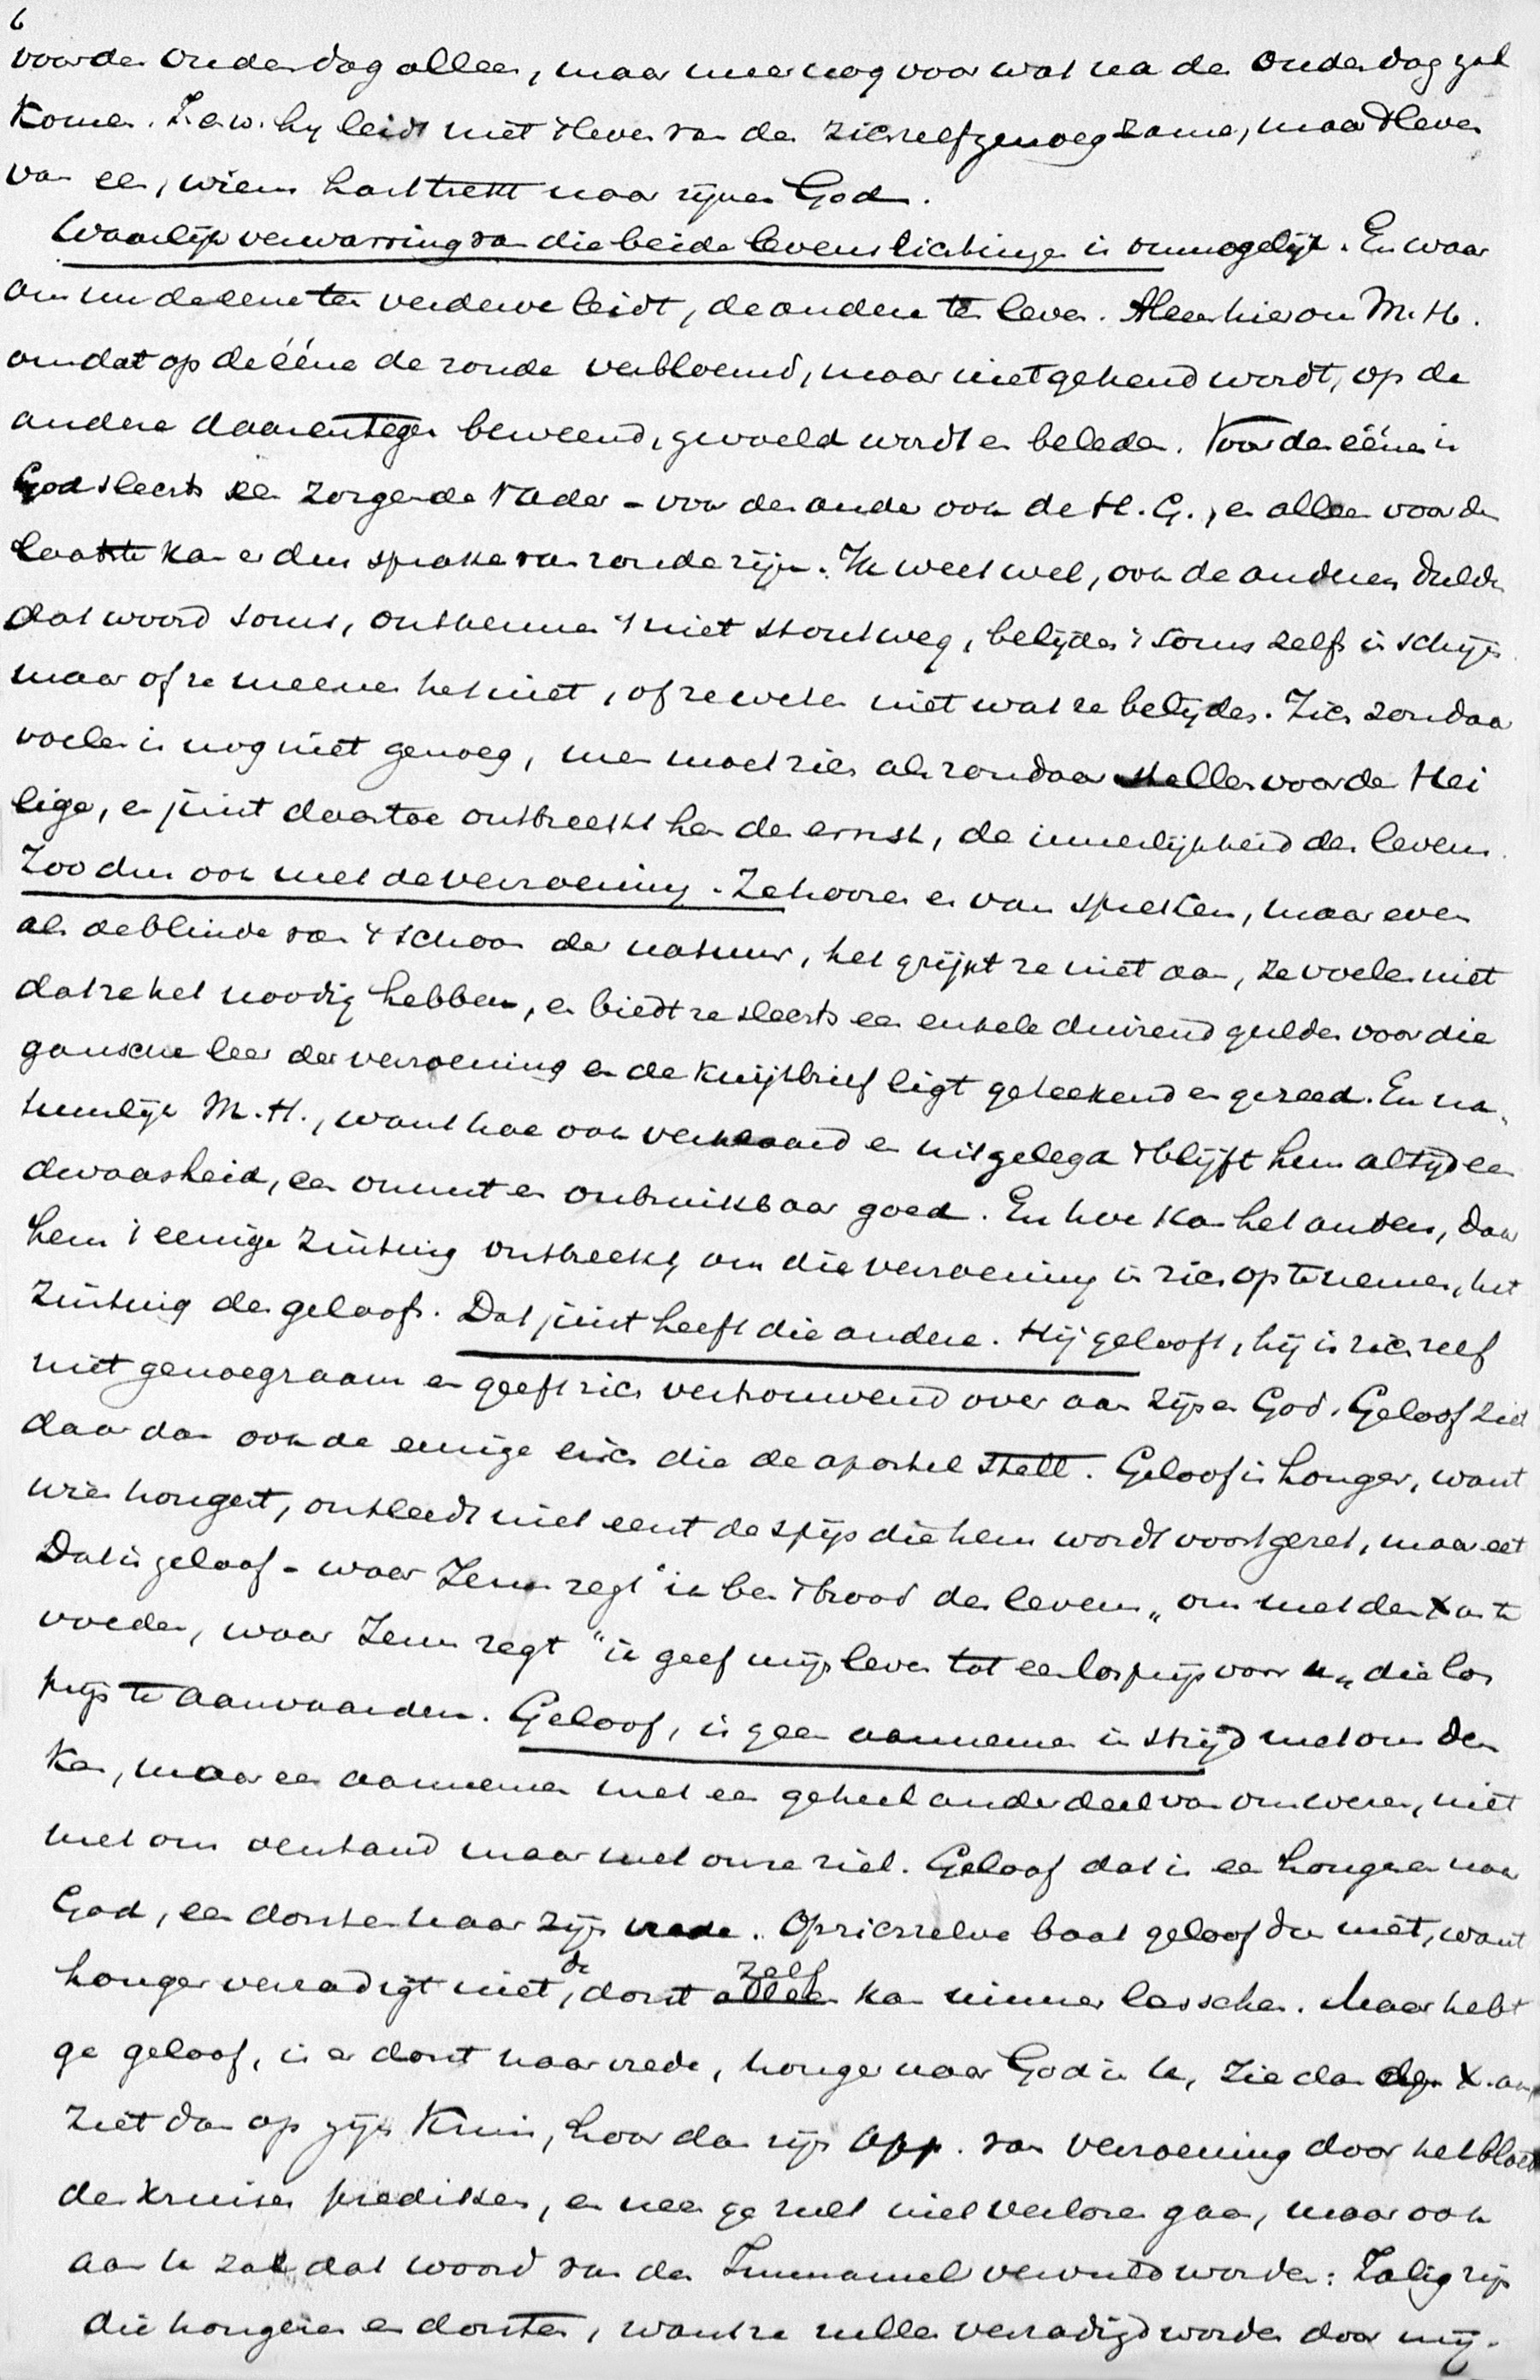 6
voor den ouden dag alleen, maar meer nog voor wat na den ouden dag zal
komen. D.w. hy leidt niet 't leven van den zich zelf genoegzame, maar 't leven
van een, wiens hart trekt naar zijnen God.
Waarlijk verwarring van die beide levensrichtingen is onmogelijk. En waar
om nu de eene ten verderve leidt, de andere ten leven. Alleen hierom M.H.
omdat op de ééne de zonde verbloemd, maar niet gekend wordt, op de
andere daarentegen beweend, gevoeld wordt en beleden. Voor den éénen is
God slechts een zorgende Vader - voor den ander ook de H.G., en alleen voor den
laatste kan er dus sprake van zonde zijn. Ik weet wel, ook de anderen dulden
dat woord soms, ontkennen 't niet stoutweg, belijden 't soms zelfs in schijn
maar of ze meenen het niet, of ze weten niet wat ze belijden. Zich zondaar
voelen is nog niet genoeg, men moet zich als zondaar stellen voor den Hei
lige, en juist daartoe ontbreekt hen de ernst, de innerlijkheid des levens.
Zoo dus ook met de verzoening. Ze hooren er van spreken, maar even
als de blinde van 't schoon der natuur, het grijpt ze niet aan, ze voelen niet
dat ze het noodig hebben, en biedt ze slechts een enkele duizend gulden voor die
gansche leer der verzoening en de kwijtbrief ligt geteekend en gereed. En na-
tuurlijk M.H., want hoe ook verklaard en uitgelegd 't blijft hun altijd een
dwaasheid, een onnut en onbruikbaar goed. En hoe kan het anders, daar
hem 't eenige zintuig ontbreekt, om die verzoening in zich op te nemen, het
zintuig des geloofs. Dat juist heeft die andere. Hij gelooft, hij is zich zelf
niet genoegzaam en geeft zich vertrouwend over aan zijn God. Geloof ziet
daar dan ook de eenige eisch die de apostel stelt. Geloof is honger, want
wie hongert, ontleedt niet eerst de spijs die hem wordt voorgezet, maar eet
Dat is geloof - waar Jezus zegt "ik ben 't brood des levens„ om met den X aan te
voeden, waar Jezus zegt "ik geef mijn leven tot een losprijs voor u„ die los
prijs te aanvaarden. Geloof, is geen aannemen in strijd met ons den
ken, maar een aannemen met een geheel ander deel van ons wezen, niet
met ons verstand maar met onze ziel. Geloof dat is een hongeren naar
God, een dorsten naar zijn vrede. Op zich zelve baat geloof dus niet, want
honger verzadigt niet, de dorst zelf kan nimmer lesschen. Maar hebt
ge geloof, is er dorst naar vrede, honger naar God in U, zie dan den X. aan,
ziet dan op zijn kruis, hoor dan zijn App. van verzoening door het bloed
des kruises prediken, en neen ge zult niet verloren gaan, maar ook
aan U zal dat woord van den Immanuel vervuld worden: Zalig zijn
die hongeren en dorsten, want ze zullen verzadigd worden door mij.